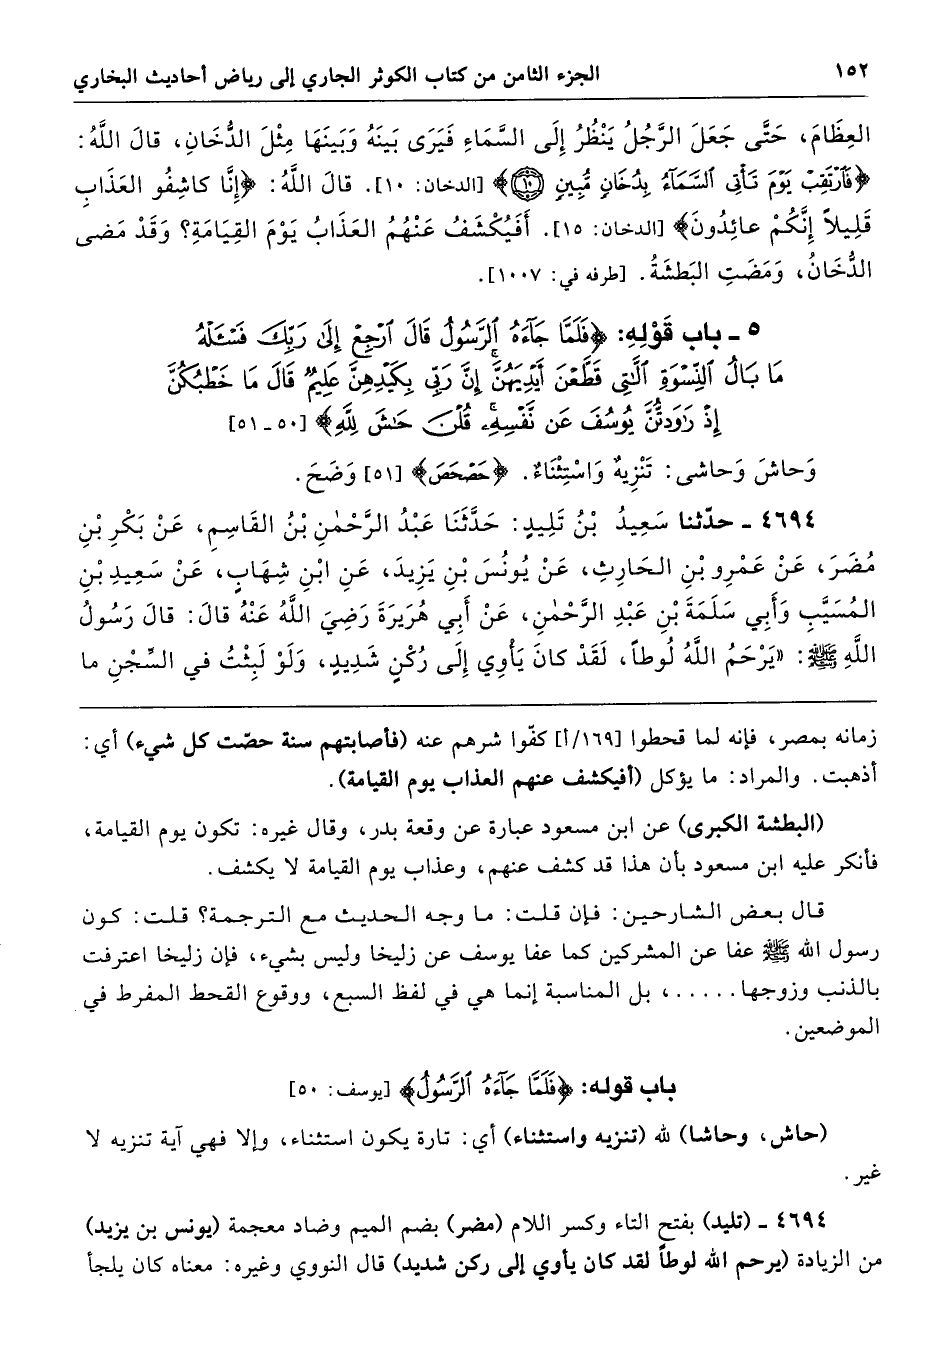 ١٥٢ الجزء الثامن من كتاب الكوثر الجاري إلى رياض أحاديث البخاري
العِظَامَ، حَتَّى جَعَلَ الرَّجُلُ يَنْظُرُ إِلَى السَّمَاءِ فَيَرَى بَيْنَهُ وَبَيْنَهَا مِثْلَ الدُّخَانِ، قالَ اللَّهُ:
﴿فَٱرْتَقِبْ يَوْمَ تَأْتِى ٱلسَّمَآءُ بِدُخَانٍ مُّبِينٍ ۝١٠﴾ [الدخان: ١٠]. قالَ اللَّهُ: ﴿إِنَّا كاشِفُو العَذَابِ
قَلِيلاً إِنَّكُمْ عائِدُونَ﴾ [الدخان: ١٥]. أَفَيُكْشَفُ عَنْهُمُ العَذَابُ يَوْمَ القِيَامَةِ؟ وَقَدْ مَضى
الدُّخَانُ، وَمَضَتِ البَطْشَةُ. [طرفه في: ١٠٠٧].
٥ ـ باب قَوْلِهِ: ﴿فَلَمَّا جَآءَهُ ٱلرَّسُولُ قَالَ ٱرْجِعْ إِلَىٰ رَبِّكَ فَسْـَٔلْهُ
مَا بَالُ ٱلنِّسْوَةِ ٱلَّٰتِى قَطَّعْنَ أَيْدِيَهُنَّ ۚ إِنَّ رَبِّى بِكَيْدِهِنَّ عَلِيمٌ قَالَ مَا خَطْبُكُنَّ
إِذْ رَٰوَدتُّنَّ يُوسُفَ عَن نَّفْسِهِۦ ۚ قُلْنَ حَٰشَ لِلَّهِ﴾ [٥٠ ـ ٥١]
وَحاشَ وَحاشى: تَنْزِيهٌ وَاسْتِثْنَاءٌ. ﴿حَصْحَصَ﴾ [٥١] وَضَحَ.
٤٦٩٤ ـ حدّثنا سَعِيدُ بْنُ تَلِيدٍ: حَدَّثَنَا عَبْدُ الرَّحْمٰنِ بْنُ القَاسِمِ، عَنْ بَكْرِ بْنِ
مُضَرَ، عَنْ عَمْرِو بْنِ الحَارِثِ، عَنْ يُونُسَ بْنِ يَزِيدَ، عَنِ ابْنِ شِهَابٍ، عَنْ سَعِيدِ بْنِ
المُسَيَّبِ وَأَبِي سَلَمَةَ بْنِ عَبْدِ الرَّحْمٰنِ، عَنْ أَبِي هُرَيرَةَ رَضِيَ اللَّهُ عَنْهُ قالَ: قالَ رَسُولُ
اللَّهِ ﷺ: «يَرْحَمُ اللَّهُ لُوطاً، لَقَدْ كانَ يَأْوِي إِلَى رُكْنٍ شَدِيدٍ، وَلَوْ لَبِثْتُ في السِّجْنِ ما
زمانه بمصر، فإنه لما قحطوا [١٦٩/أ] كفّوا شرهم عنه (فأصابتهم سنة حصّت كل شيء) أي:
أذهبت. والمراد: ما يؤكل (أفيكشف عنهم العذاب يوم القيامة).
(البطشة الكبرى) عن ابن مسعود عبارة عن وقعة بدر، وقال غيره: تكون يوم القيامة،
فأنكر عليه ابن مسعود بأن هذا قد كشف عنهم، وعذاب يوم القيامة لا يكشف.
قال بعض الشارحين: فإن قلت: ما وجه الحديث مع الترجمة؟ قلت: كون
رسول الله ﷺ عفا عن المشركين كما عفا يوسف عن زليخا وليس بشيء، فإن زليخا اعترفت
بالذنب وزوجها......، بل المناسبة إنما هي في لفظ السبع، ووقوع القحط المفرط في
الموضعين.
باب قوله: ﴿فَلَمَّا جَآءَهُ ٱلرَّسُولُ﴾ [يوسف: ٥٠]
(حاش، وحاشا) لله (تنزيه واستثناء) أي: تارة يكون استثناء، وإلا فهي آية تنزيه لا
غير.
٤٦٩٤ ـ (تليد) بفتح التاء وكسر اللام (مضر) بضم الميم وضاد معجمة (يونس بن يزيد)
من الزيادة (يرحم الله لوطاً لقد كان يأوي إلى ركن شديد) قال النووي وغيره: معناه كان يلجأ